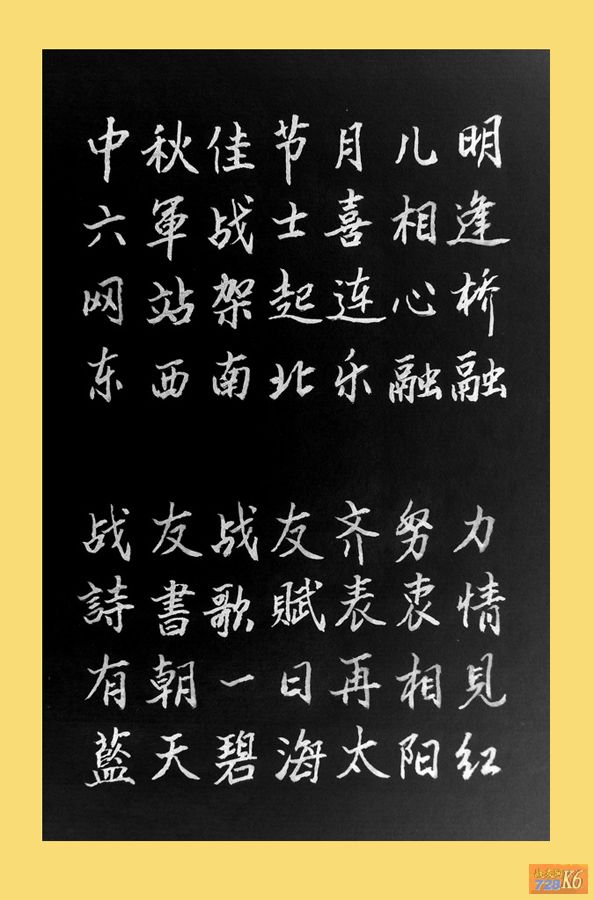 中秋佳节月儿明
六軍战士喜相逢
网站架起连心桥
东西南北乐融融
战友战友齐努力
詩書歌賦表衷情
有朝一日再相見
藍天碧海太阳红
战友网
728K6